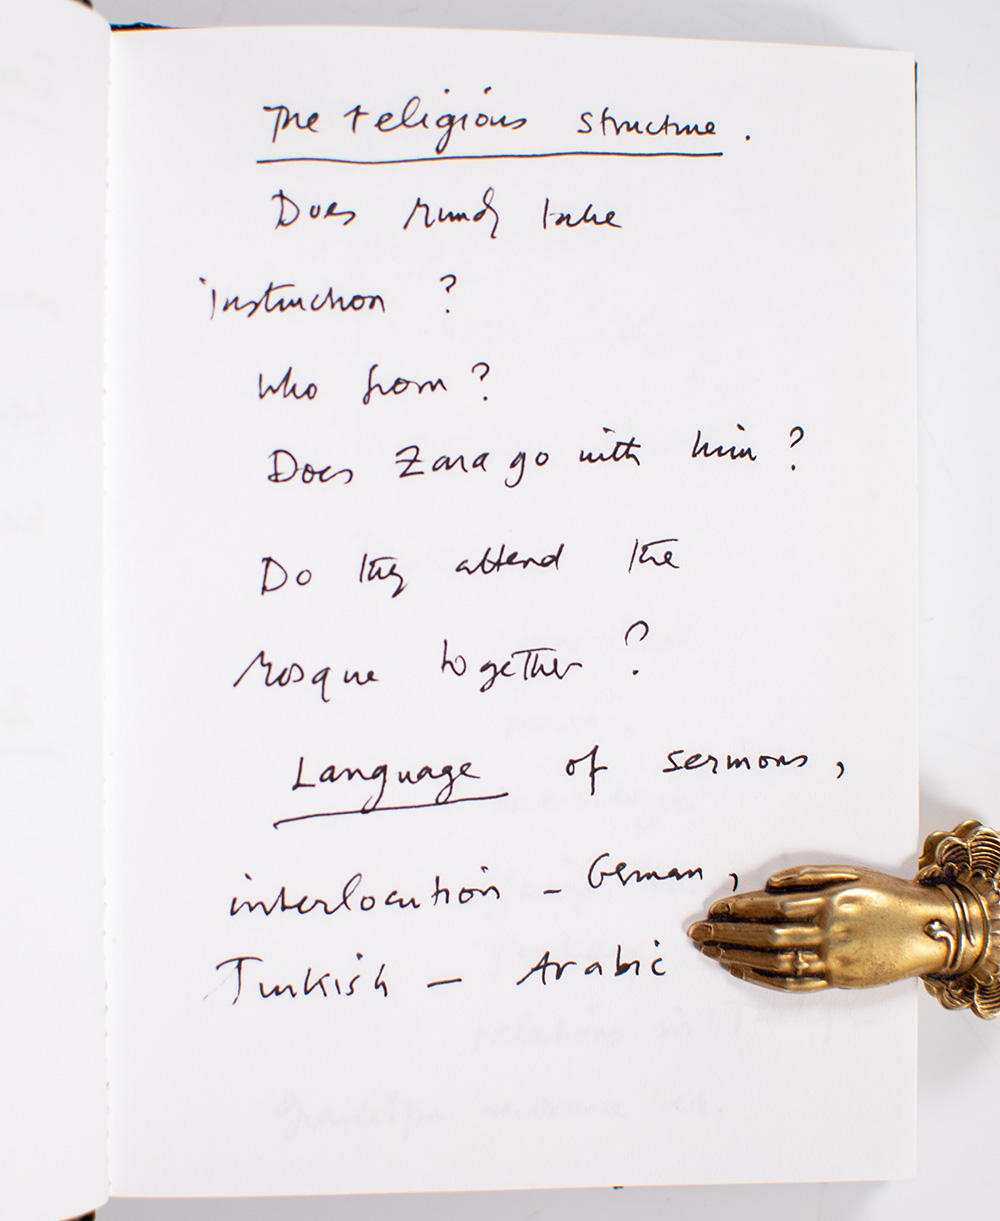 The religious structure.
Does Rundy take
instruction ?
Who from ?
Does Zara go with him ?
Do they attend the
Mosque together ?
Language of sermons,
interlocution - German,
Turkish - Arabic
relations in